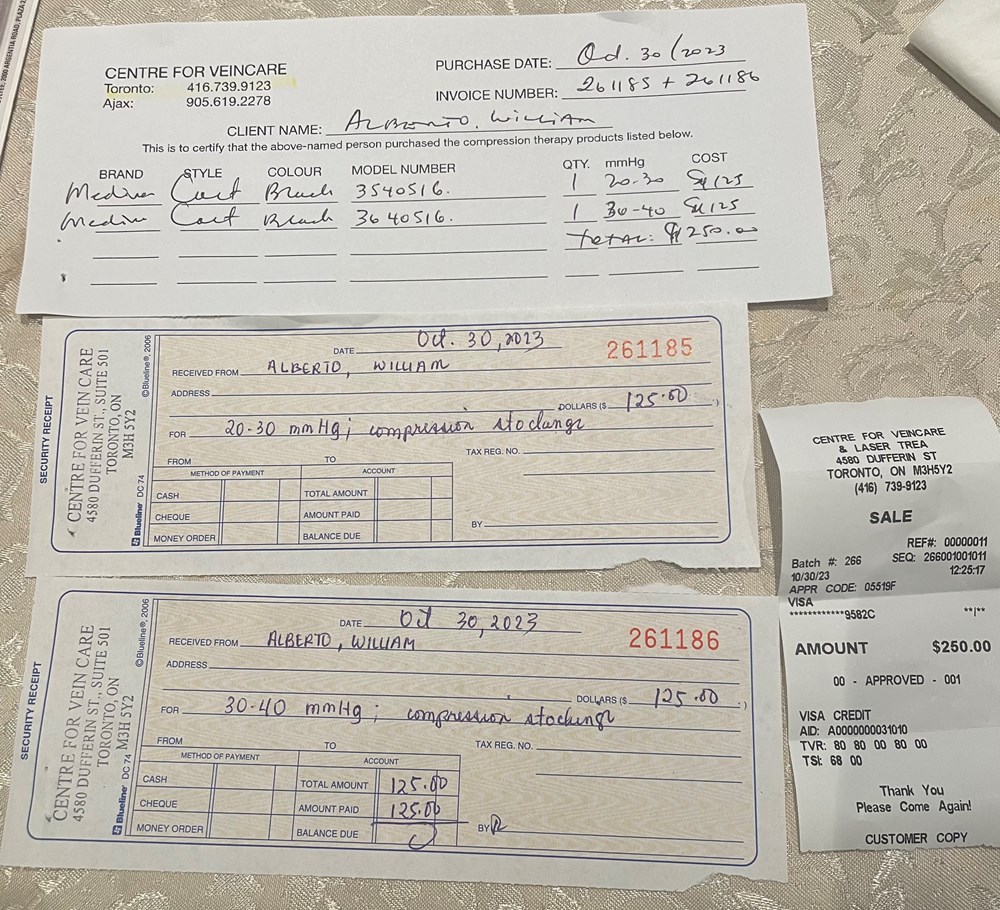 2000 ARGENTIA ROAD, PLAZA
CENTRE FOR VEINCARE
Toronto: 416.739.9123
Ajax: 905.619.2278
PURCHASE DATE: Oct. 30/2023
INVOICE NUMBER: 261185 + 261186
CLIENT NAME: ALBERTO, William
This is to certify that the above-named person purchased the compression therapy products listed below.
BRAND STYLE COLOUR MODEL NUMBER QTY. mmHg COST
Black 3540516. 1 20-30 $125
Black 3640516. 1 30-40 $125
TOTAL: $250.00
SECURITY RECEIPT
CENTRE FOR VEIN CARE
4580 DUFFERIN ST., SUITE 501
TORONTO, ON
M3H 5Y2
©Blueline®, 2006
Blueline® DC 74
DATE Oct. 30, 2023
261185
RECEIVED FROM ALBERTO, WILLIAM
ADDRESS
DOLLARS ($ 125.00 )
FOR 20-30 mmHg; compression stockings
TAX REG. NO.
FROM TO
METHOD OF PAYMENT ACCOUNT
CASH TOTAL AMOUNT
CHEQUE AMOUNT PAID
MONEY ORDER BALANCE DUE
BY
SECURITY RECEIPT
CENTRE FOR VEIN CARE
4580 DUFFERIN ST., SUITE 501
TORONTO, ON
M3H 5Y2
©Blueline®, 2006
Blueline® DC 74
DATE Oct 30, 2023
261186
RECEIVED FROM ALBERTO, WILLIAM
ADDRESS
DOLLARS ($ 125.00 )
FOR 30-40 mmHg; compression stockings
TAX REG. NO.
FROM TO
METHOD OF PAYMENT ACCOUNT
CASH TOTAL AMOUNT 125.00
CHEQUE AMOUNT PAID 125.00
MONEY ORDER BALANCE DUE 0
BY
CENTRE FOR VEINCARE
& LASER TREA
4580 DUFFERIN ST
TORONTO, ON M3H5Y2
(416) 739-9123
SALE
REF#: 00000011
Batch #: 266 SEQ: 266001001011
10/30/23 12:25:17
APPR CODE: 05519F
VISA
************9582C **/**
AMOUNT $250.00
00 - APPROVED - 001
VISA CREDIT
AID: A0000000031010
TVR: 80 80 00 80 00
TSI: 68 00
Thank You
Please Come Again!
CUSTOMER COPY